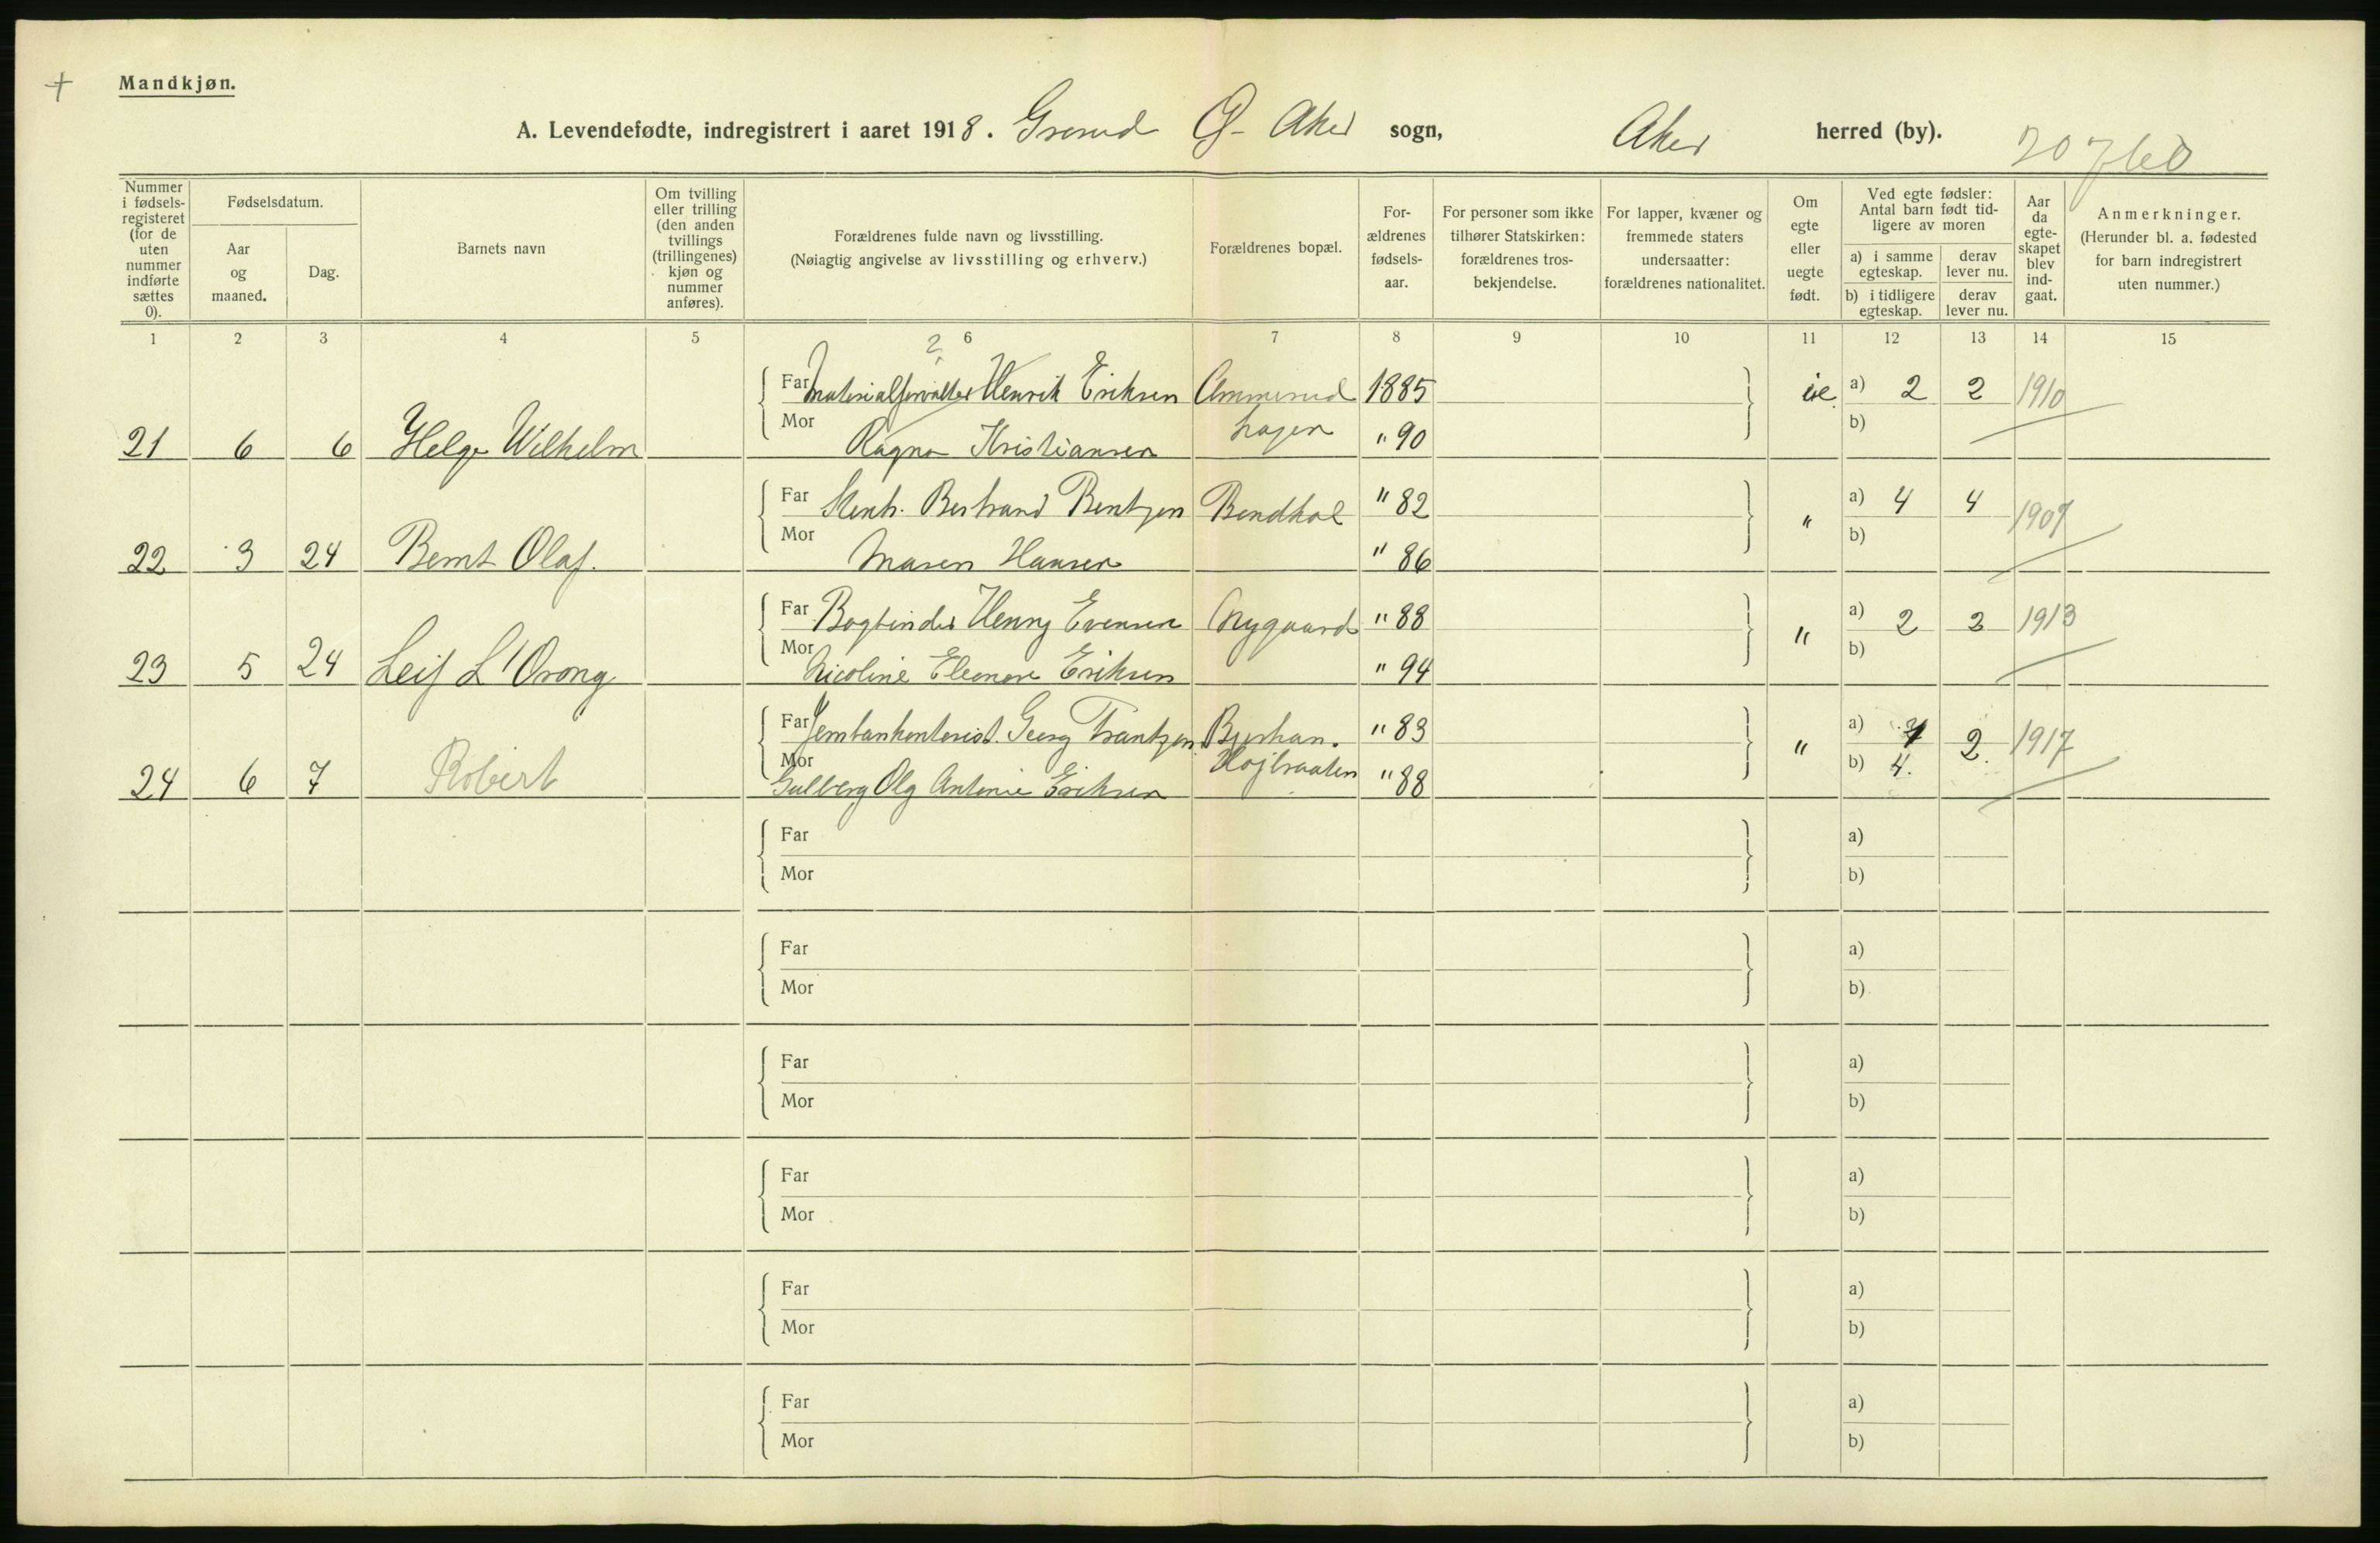 Mandkjøn.
A. Levendefødte, indregistrert i aaret 1918. Grorud Ø. Aker sogn, Aker herred (by).
20760
Nummer i fødselsregisteret (for de uten nummer indførte sættes 0).
Fødselsdatum.
Aar og maaned.
Dag.
Barnets navn
Om tvilling eller trilling (den anden tvillings (trillingenes) kjøn og nummer anføres).
Forældrenes fulde navn og livsstilling.
(Nøiagtig angivelse av livsstilling og erhverv.)
Forældrenes bopæl.
Forældrenes fødselsaar.
For personer som ikke tilhører Statskirken: forældrenes trosbekjendelse.
For lapper, kvæner og fremmede staters undersaatter: forældrenes nationalitet.
Om egte eller uegte født.
Ved egte fødsler: Antal barn født tidligere av moren
a) i samme egteskap.
derav lever nu.
b) i tidligere egteskap.
derav lever nu.
Aar da egteskapet blev indgaat.
Anmerkninger.
(Herunder bl. a. fødested for barn indregistrert uten nummer.)
1 2 3 4 5 6 7 8 9 10 11 12 13 14 15
2
Far Materialforvalter Henrik Eriksen Ammerud 1885 a) 2 2 1910
Mor hagen b)
21 6 6 Helge Wilhelm Ragna Kristiansen " 90
Far Bertrand Bentzen " 82 " a) 4 4 1907
Mor b)
22 3 24 Bernt Olaf. Maren Hansen " 86
Far Bogbinder Henry Evensen Nygaard " 88 " a) 2 2 1913
Mor b)
23 5 24 Leif L'Orong Nicoline Eleonore Eriksen " 94
Far Jernbankontorist. Georg Frantzen " 83 " a) 2. 1917
Mor b) 4.
24 6 7 Robert Gulberg Olg Antonie Eriksen " 88
Far a)
Mor b)
Far a)
Mor b)
Far a)
Mor b)
Far a)
Mor b)
Far a)
Mor b)
Far a)
Mor b)